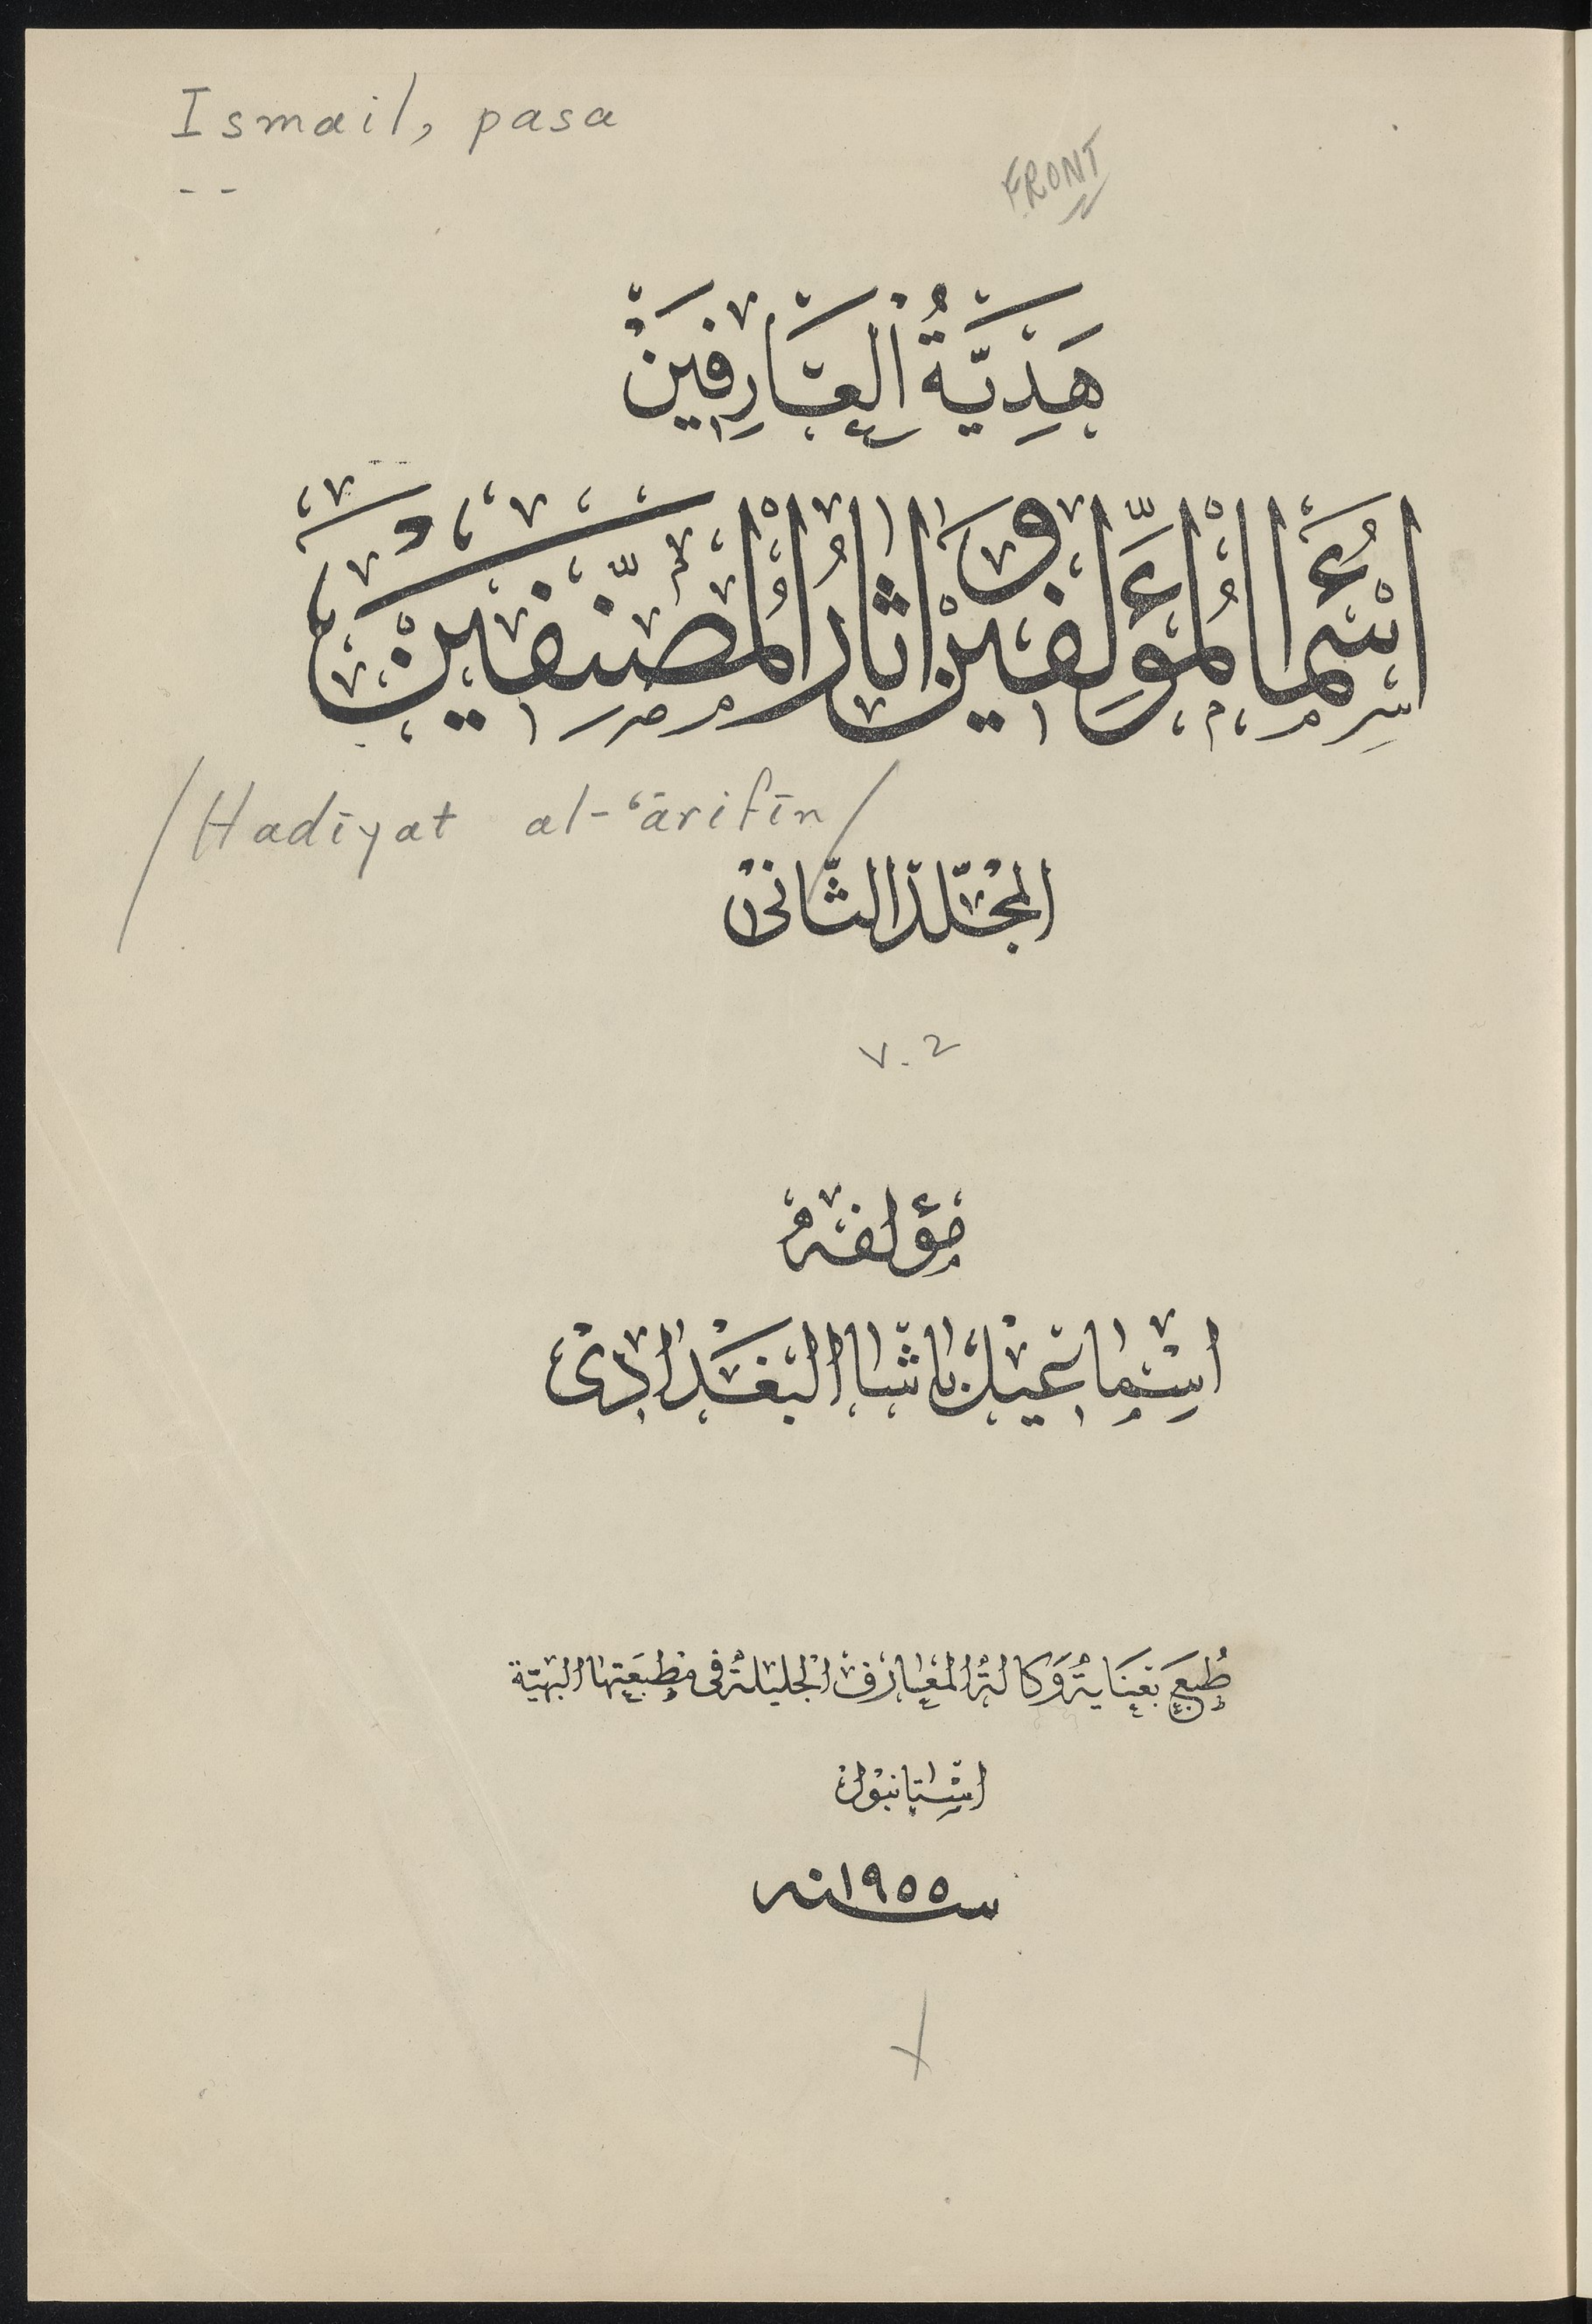 Ismail, pasa
--
FRONT
هَدِيَّةُ الْعَارِفِينَ
اَسْمَاءُ الْمُؤَلِّفِينَ وَ اٰثَارُ الْمُصَنِّفِينَ
/Hadīyat al-ʻārifīn/
المجلّد الثّانى
v. 2
مؤلفه
اسماعيل باشا البغدادى
طُبِعَ بعناية وكالة المعارف الجليلة فى مطبعتها البهيّة
استانبول
سنه ١٩٥٥